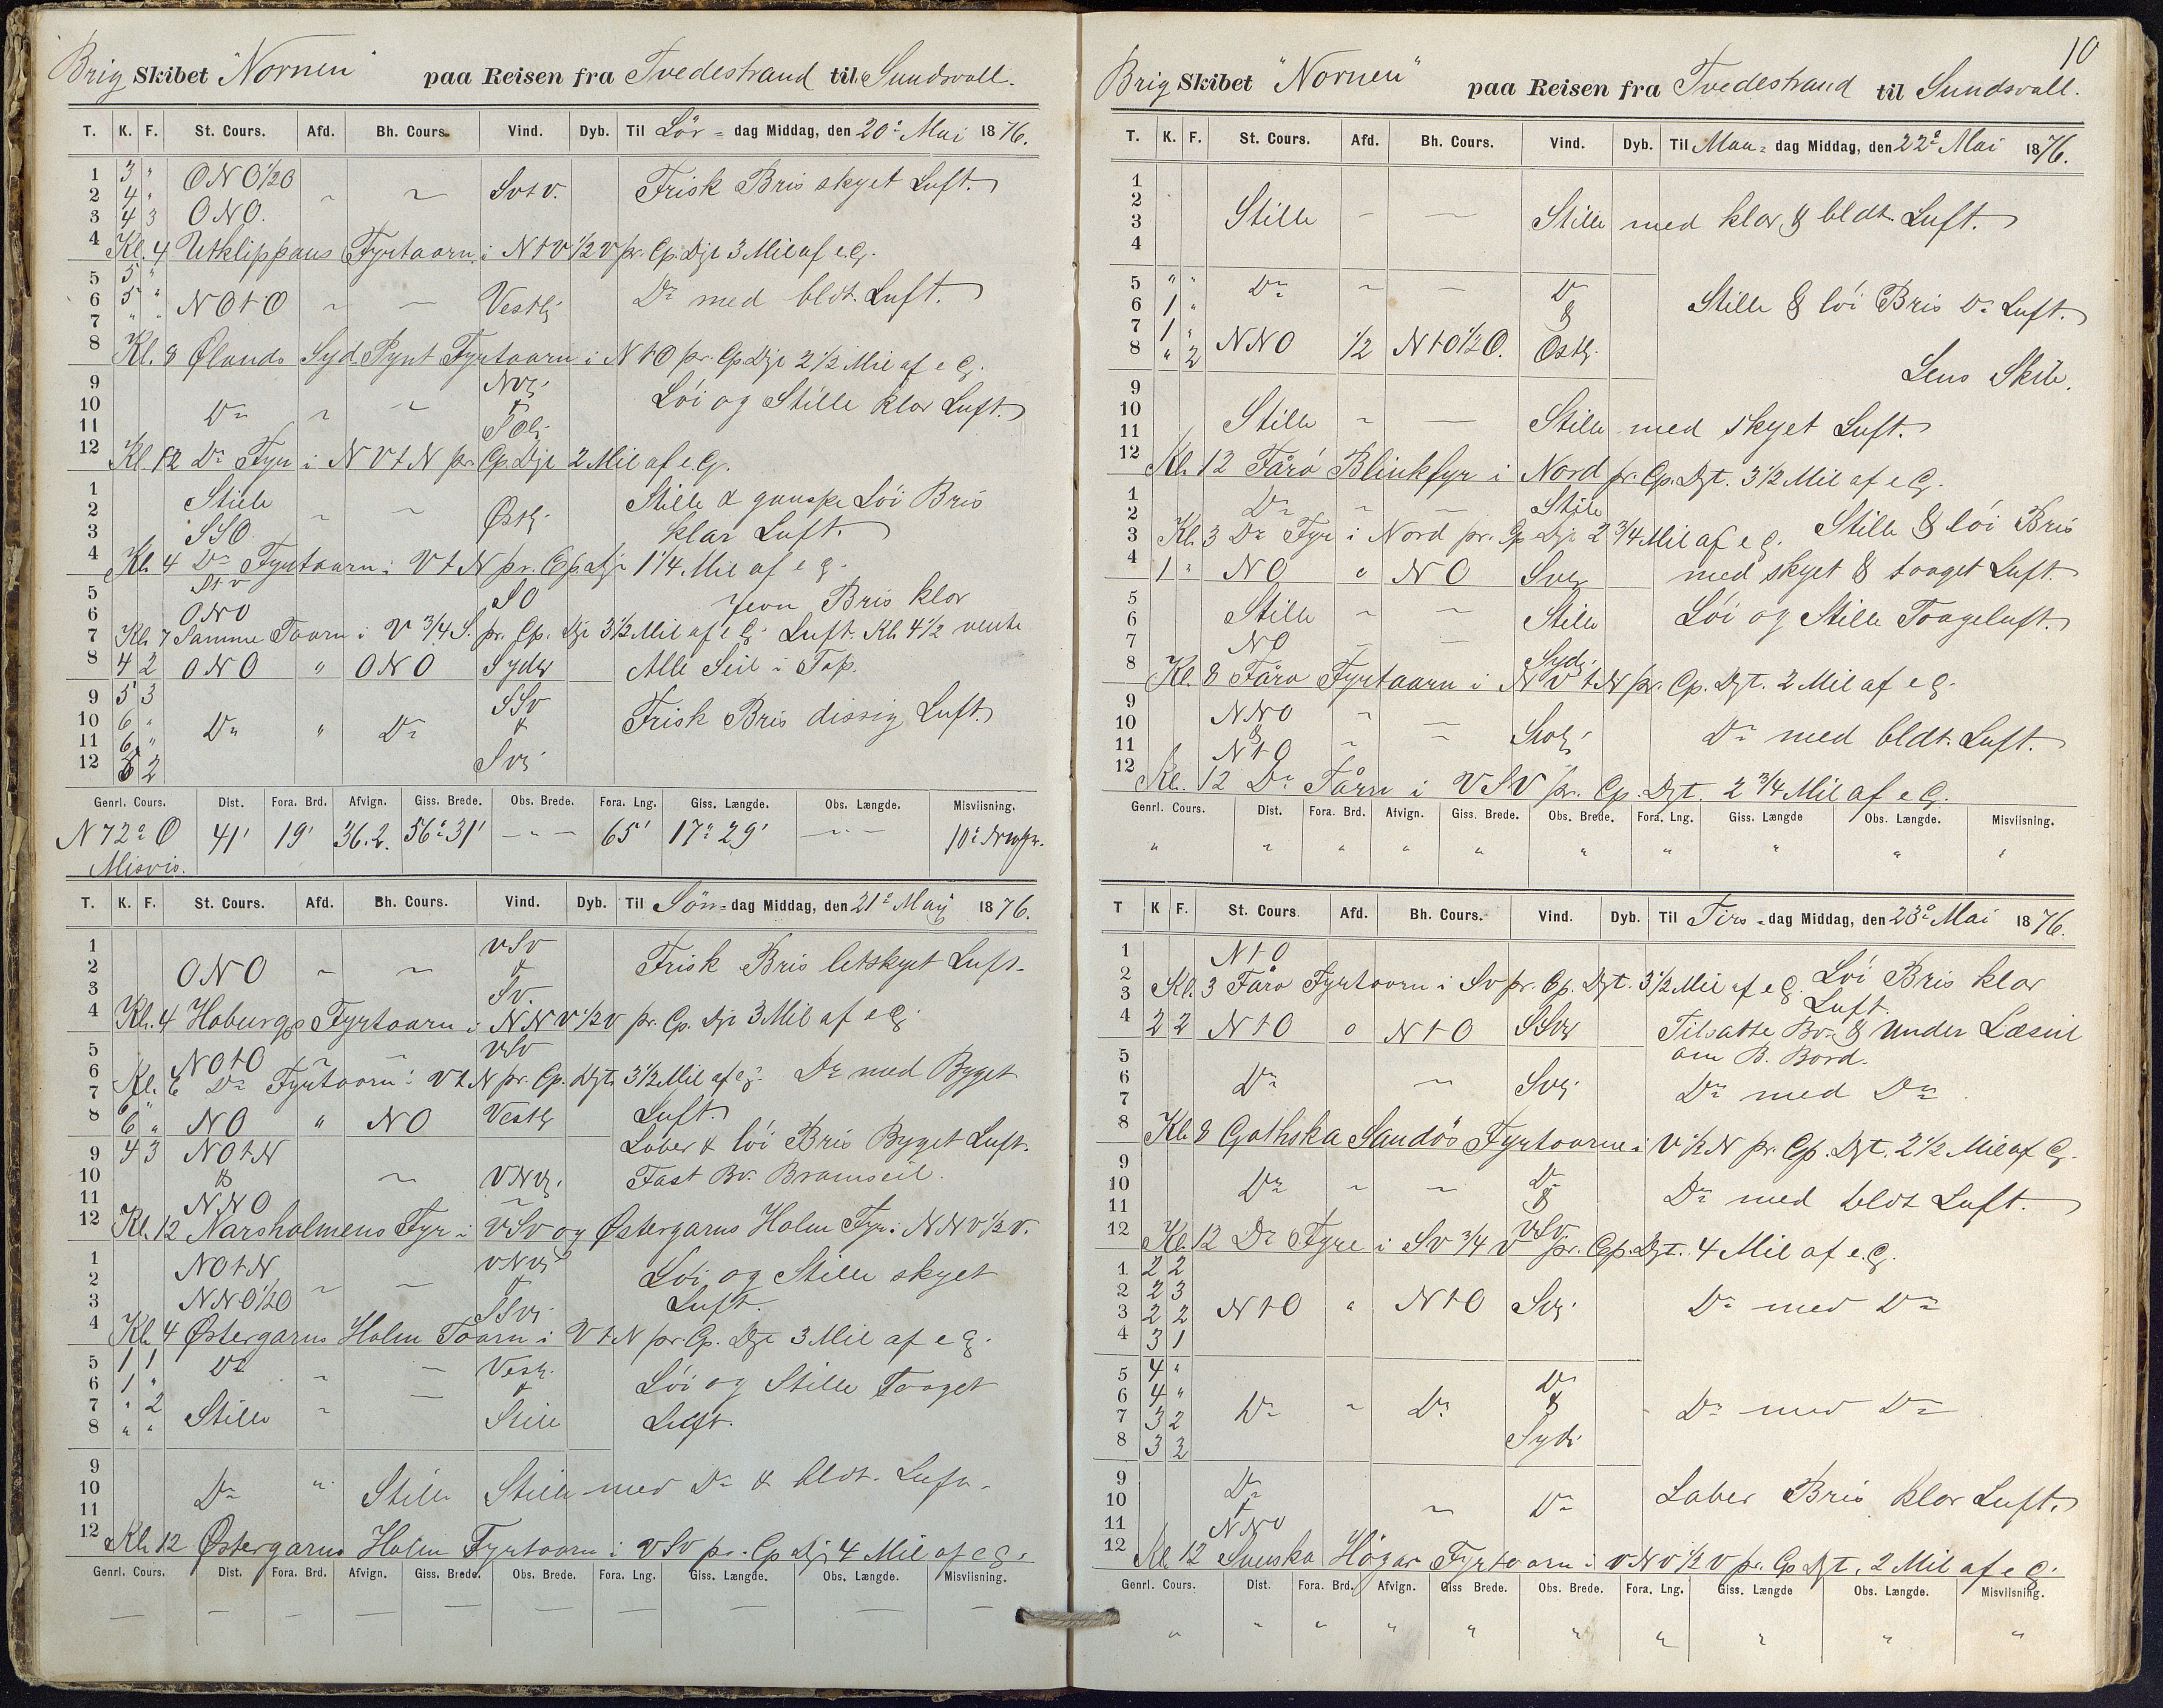 Brig Skibet "Nornen" paa Reisen fra Tvedestrand til Sundsvall.
T. K. F. St. Cours. Afd. Bh. Cours. Vind. Dyb. Til Lör-dag Middag, den 20de Mai 1876.
1 3 " ONO½O
2 4 " ~ ~ SvtV. Frisk Bris skyet Luft.
3 4 3 ONO.
4 Kl. 4 Utklippans Fyrtaarn i NtV½V pr. Cp. Dje 3 Mil af e.G.
5 5 "
6 5 " NOtO ~ ~ Vestlg Do med bldt. Luft.
7 " "
8 Kl. 8 Ølands Syd Pynt Fyrtaarn i NtO pr. Cp Dje 2½ Mil af e G.
9 NVg
10 Do ~ ~ & Löi og Stille klar Luft.
11 SOlg
12 Kl. 12 Do Fyr i NVtN pr. Cp Dje 2 Mil af e G.
1 Stille Stille & ganske Löi Bris
2 ~ ~ Østlg
3 SSO klar Luft.
4 Kl. 4 Do Fyrtaarn i VtN pr. Cp. Dje 1¼ Mil af e G.
5 StV SO Jevn Bris klar
6 ONO
7 Kl. 7 Samme Taarn i V¾S. pr. Cp. Dje 3½ Mil af e G. Luft. Kl. 4½ vente
8 4 2 ONO " ONO Sydlg Alle Seil i Top.
9 5 3 SSv
10 6 " Do " Do & Frisk Bris dissig Luft.
11 6 "
12 5 2 Svg
Genrl. Cours. Dist. Fora. Brd. Afvign. Giss. Brede. Obs. Brede. Fora. Lng. Giss. Længde. Obs. Længde. Misviisning.
N 72° O 41' 19' 36.2. 56° 31' — " — 65' 17° 29' — " — 10°
Misvis.
T. K. F. St. Cours. Afd. Bh. Cours. Vind. Dyb. Til Sön-dag Middag, den 21de Mai 1876.
1 VSv
2 ONO ~ ~ & Frisk Bris letskyet Luft.
3 Sv.
4 Kl. 4 Hoburgs Fyrtaarn i NNV½V pr. Cp. Dje 3 Mil af e G.
5 NOtO ~ ~ VSv
6 Kl. 6 Do Fyrtaarn i VtN pr. Cp. Dyt. 3½ Mil af e G. Do med Byget
7 6 "
8 6 " NO " NO Vestlg Luft.
9 4 3 NOtN Laber & löi Bris Byget Luft.
10 & ~ VNVg. Fast Bv. Bramseil.
11 NNO
12 Kl. 12 Narsholmens Fyr i VSV og Østergarns Holm Fyr i NNV½V.
1 NOtN VNVg
2 ~ ~ & Löi og Stille skyet
3 NNO½O SSVg Luft.
4 Kl. 4 Østergarns Holm Taarn i VtN pr. Cp. Dyt 3 Mil af e G.
5 1 1 Do Vestg.
6 1 " ~ ~ & Löi og Stille Taaget
7 " 2 Stille ~ ~ Stille Luft.
8 " "
9
10 Do " Stille Stille med Do & bldt. Luft.
11
12 Kl. 12 Østergarns Holm Fyrtaarn i VSV pr. Cp Dje 4 Mil af e G.
Genrl. Cours. Dist. Fora. Brd. Afvign. Giss. Brede. Obs. Brede. Fora. Lng. Giss. Længde. Obs. Længde. Misviisning.
— — — — — — — — — —
10
Brig Skibet "Nornen" paa Reisen fra Tvedestrand til Sundsvall.
T. K. F. St. Cours. Afd. Bh. Cours. Vind. Dyb. Til Man-dag Middag, den 22de Mai 1876.
1
2
3 Stille — — Stille med klar & bldt. Luft.
4
5 " " Do ~ — Do Stille & löi Bris Do Luft.
6 1 " &
7 1 " NNO ½ NtO½O. Østlg.
8 " 2 Lens Skib.
9
10 Stille ~ — Stille med skyet Luft.
11
12 Kl. 12 Fårö Blinkfyr i Nord pr. Cp. Dyt. 3½ Mil af e G.
1 Do ~ — Stille
2
3 Kl. 3 Do Fyr i Nord pr. Cp Dje 2¾ Mil af e G. Stille & löi Bris
4 1 " NO " NO Svg med skyet & taaget Luft.
5
6 Stille ~ ~ Stille Löi og Stille Taageluft.
7 NO ~ —
8 Kl. 8 Fårö Fyrtaarn i NVtN pr. Cp. Dyt. 2 Mil af e G. Sydg.
9 NNO ~ —
10 & Svlg Do med bldt. Luft.
11 NtO
12 Kl. 12 Do Tårn i VSV pr. Cp. Dyt. 2¾ Mil af e G.
Genrl. Cours. Dist. Fora. Brd. Afvign. Giss. Brede. Obs. Brede. Fora. Lng. Giss. Længde Obs. Længde. Misviisning.
" " " " " " " " " "
T K F. St. Cours. Afd. Bh. Cours. Vind. Dyb. Til Tirs-dag Middag, den 23de Mai 1876.
1 NtO
2 Löi Bris klar
3 Kl. 3 Fårö Fyrtaarn i Sv pr. Cp. Dyt. 3½ Mil af e G. Luft.
4 2 2 NtO " NtO SSvg Tilsatte Bv. & Under Læseil
5 om B. Bord.
6 Do ~ Svg. Do med Do
7
8 Kl. 8 Gothska Sandös Fyrtaarne i V½N pr. Cp. Dyt. 2½ Mil af G.
9 Do
10 Do ~ ~ & Do med bldt Luft.
11 VSv
12 Kl. 12 Do Fyre i Sv¾V pr. Cp. Dyt. 4 Mil af e. G.
1 2 2
2 2 3
3 2 2 NtO " NtO Svg. Do med Do
4 3 1
5 4 " Do
6 4 " Do " Do & Do med Do
7 3 2
8 3 3 Sydg
9 Do
10 & ~ Do Laber Bris klar Luft.
11 NNO
12 Kl. 12 Svenska Högar Fyrtaarn i VNV½V pr. Cp Dyt. 2 Mil af e G.
Genrl. Cours. Dist. Fora. Brd. Afvign. Giss Brede. Obs. Brede. Fora. Lng. Giss. Længde Obs. Længde. Misviisning.
" " " " " " " " " "